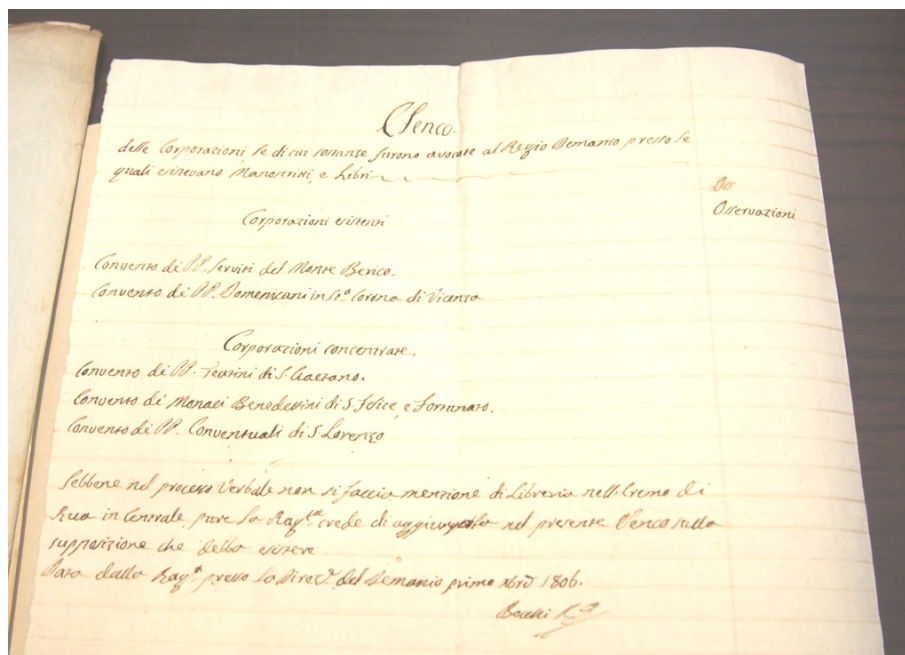 Elenco
delle Corporazioni le di cui sostanze furono avocate al Regio Demanio presso le
quali esistevano Manoscritti, e Libri
Osservazioni
Corporazioni esistenti
Convento de PP. Serviti del Monte Berico.
Convento de PP. Domenicani in Sta. Corona di Vicenza
Corporazioni concentrate.
Convento de PP. Teatini di S. Gaetano.
Convento de Monaci Benedettini di S. Felice, e Fortunato.
Convento de PP. Conventuali di S. Lorenzo
Sebbene nel processo Verbale non si faccia menzione di Libreria nell'Eremo di
Rua in Centrale pure la Ragta. crede di aggiungerla nel presente Elenco sulla
supposizione che debba esistere
Data dalla Raga. presso la Direz. del Demanio primo Xbre 1806.